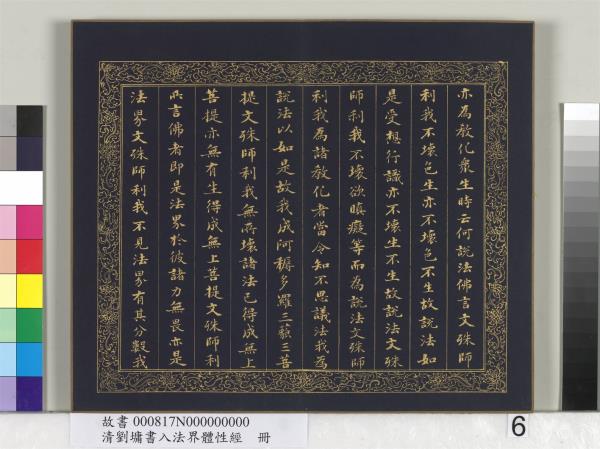 亦為教化衆生時云何說法佛言文殊師
利我不壞色生亦不壞色不生故說法如
是受想行識亦不壞生不生故說法文殊
師利我不壞欲瞋癡等而為說法文殊師
利我為諸教化者當令知不思議法我為
說法以如是故我成阿耨多羅三藐三菩
提文殊師利我無所壞諸法已得成無上
菩提亦無有生得成無上菩提文殊師利
所言佛者即是法界於彼諸力無畏亦是
法界文殊師利我不見法界有其分數我
故書 000817N000000000
清劉墉書入法界體性經 冊
6